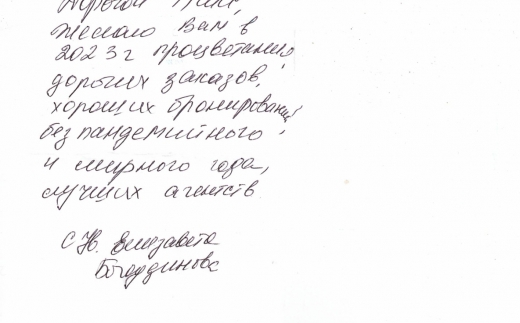 Дорогой Пикс,
желаю Вам в
2023 г процветания,
дорогих заказов,
хороших бронирований,
без пандемийного
и мирного года,
лучших агентств
С НГ. Елизавета